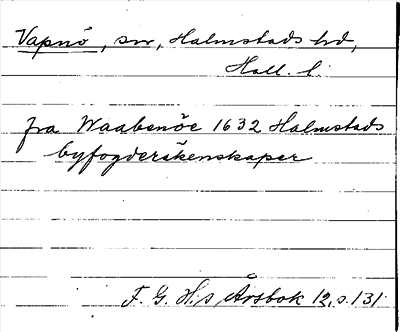 Vapnö, sn, Halmstads hd,
Hall. l.
fra Waabenöe 1632 Halmstads
byfogderäkenskaper
F. G. H:s Årsbok 12, s. 131